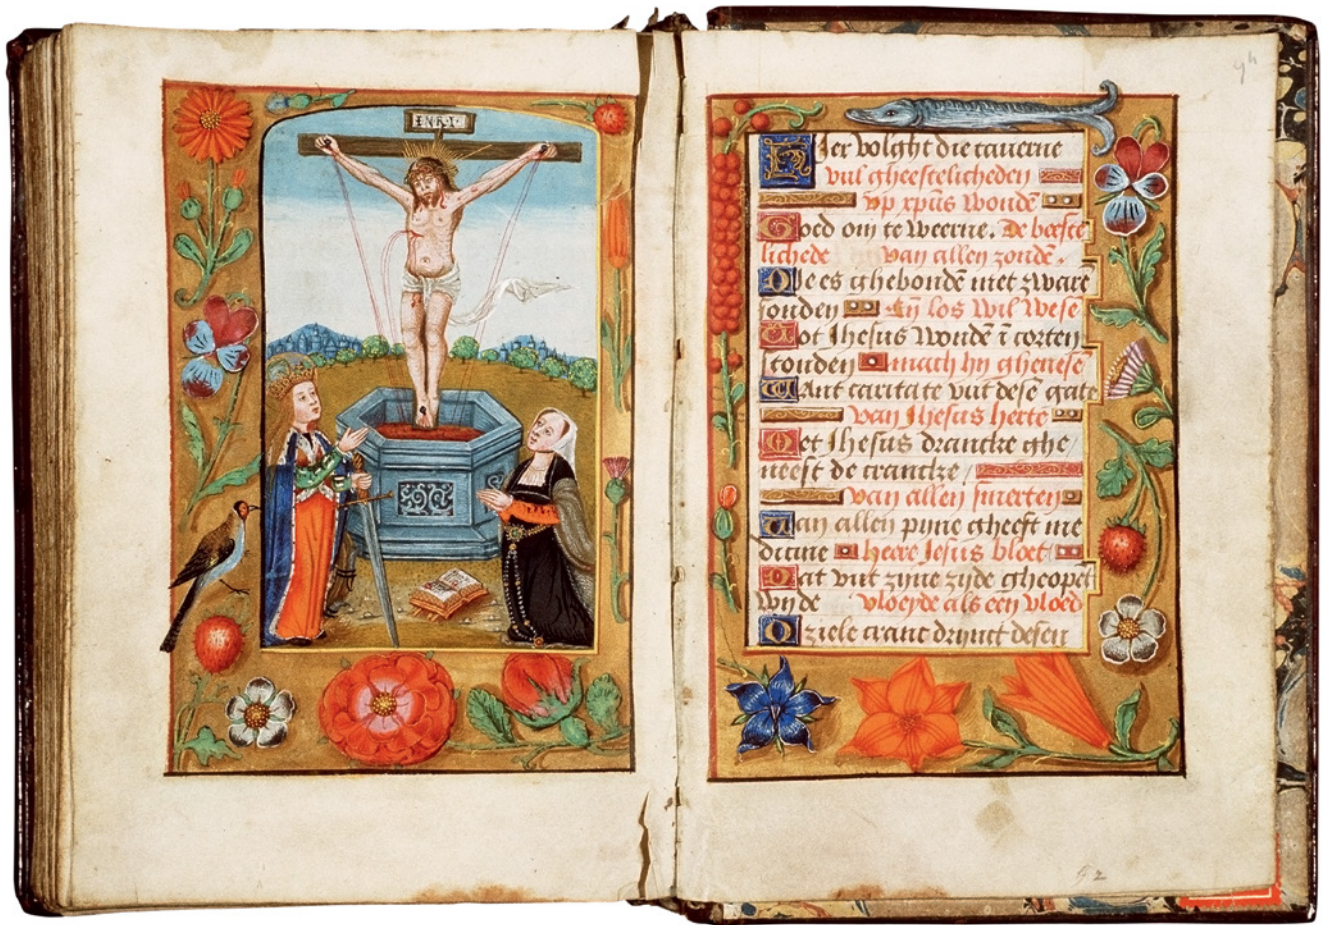 INRI
Hier volght die tauerne
vul gheestelicheden
vp xpūs wondē
Goed om te weerne. De beeste
lichede van allen zondē.
Die es ghebondē met zware
sonden En los wil wesē
Tot Jhesus wondē ī corten
stonden mach hy ghenesē
Want caritate vut desē gate
van Jhesus herte
Met Jhesus drancke ghe/
neest de crancke /
van allen smerten
Van allen pyne gheeft me
dicine heere Jesus bloet
Dat vut zijne zyde gheopet
wyde vloeyde als een vloed
O ziele cranc drinct desen
92